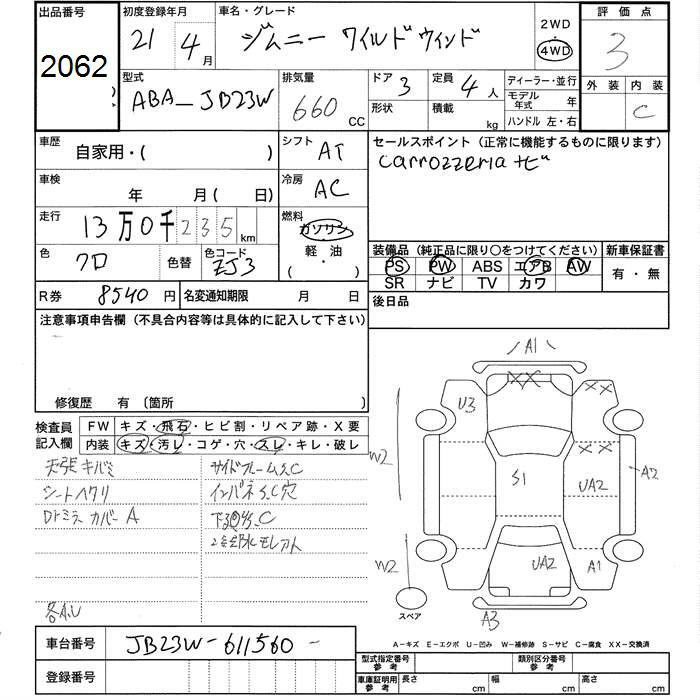 出品番号 初度登録年月 車名・グレード 2WD ・ 4WD 評価点
2062 21年 4月 ジムニー ワイルドウィンド 3
型式 排気量 ドア 3 定員 4人 ディーラー・並行 外装 内装
ABA-JB23W 660 CC 形状 積載 kg モデル年式 年 C
ハンドル 左・右
車歴 自家用・( ) シフト AT セールスポイント (正常に機能するものに限ります)
carrozzeriaナビ
車検 年 月( 日) 冷房 AC
走行 13万0千235km 燃料 ガソリン
軽・油
( ・ )
色 クロ 色替 色コード ZJ3
装備品 (純正品に限り○をつけてください) 新車保証書
PS PW ABS エアB AW 有・無
SR ナビ TV カワ
R券 8540円 名変通知期限 月 日 後日品
注意事項申告欄 (不具合内容等は具体的に記入して下さい)
修復歴 有 (箇所 )
検査員記入欄 FW キズ・飛石・ヒビ割・リペア跡・X要
内装 キズ・汚レ・コゲ・穴・スレ・キレ・破レ
天張キバミ サイドフレームS,C
シートヘタリ インパネS,C穴
Drミラーカバー A
A1
XX XX
U3
W2 XX A2
S1 UA2
W2 UA2 A1
スペア A3
A-キズ E-エクボ U-凹み W-補修跡 S-サビ C-腐食 XX-交換済
車台番号 JB23W-611560-
登録番号
型式指定番号 参考 類別区分番号 参考
車庫証明用 参考 長さ cm 幅 cm 高さ cm